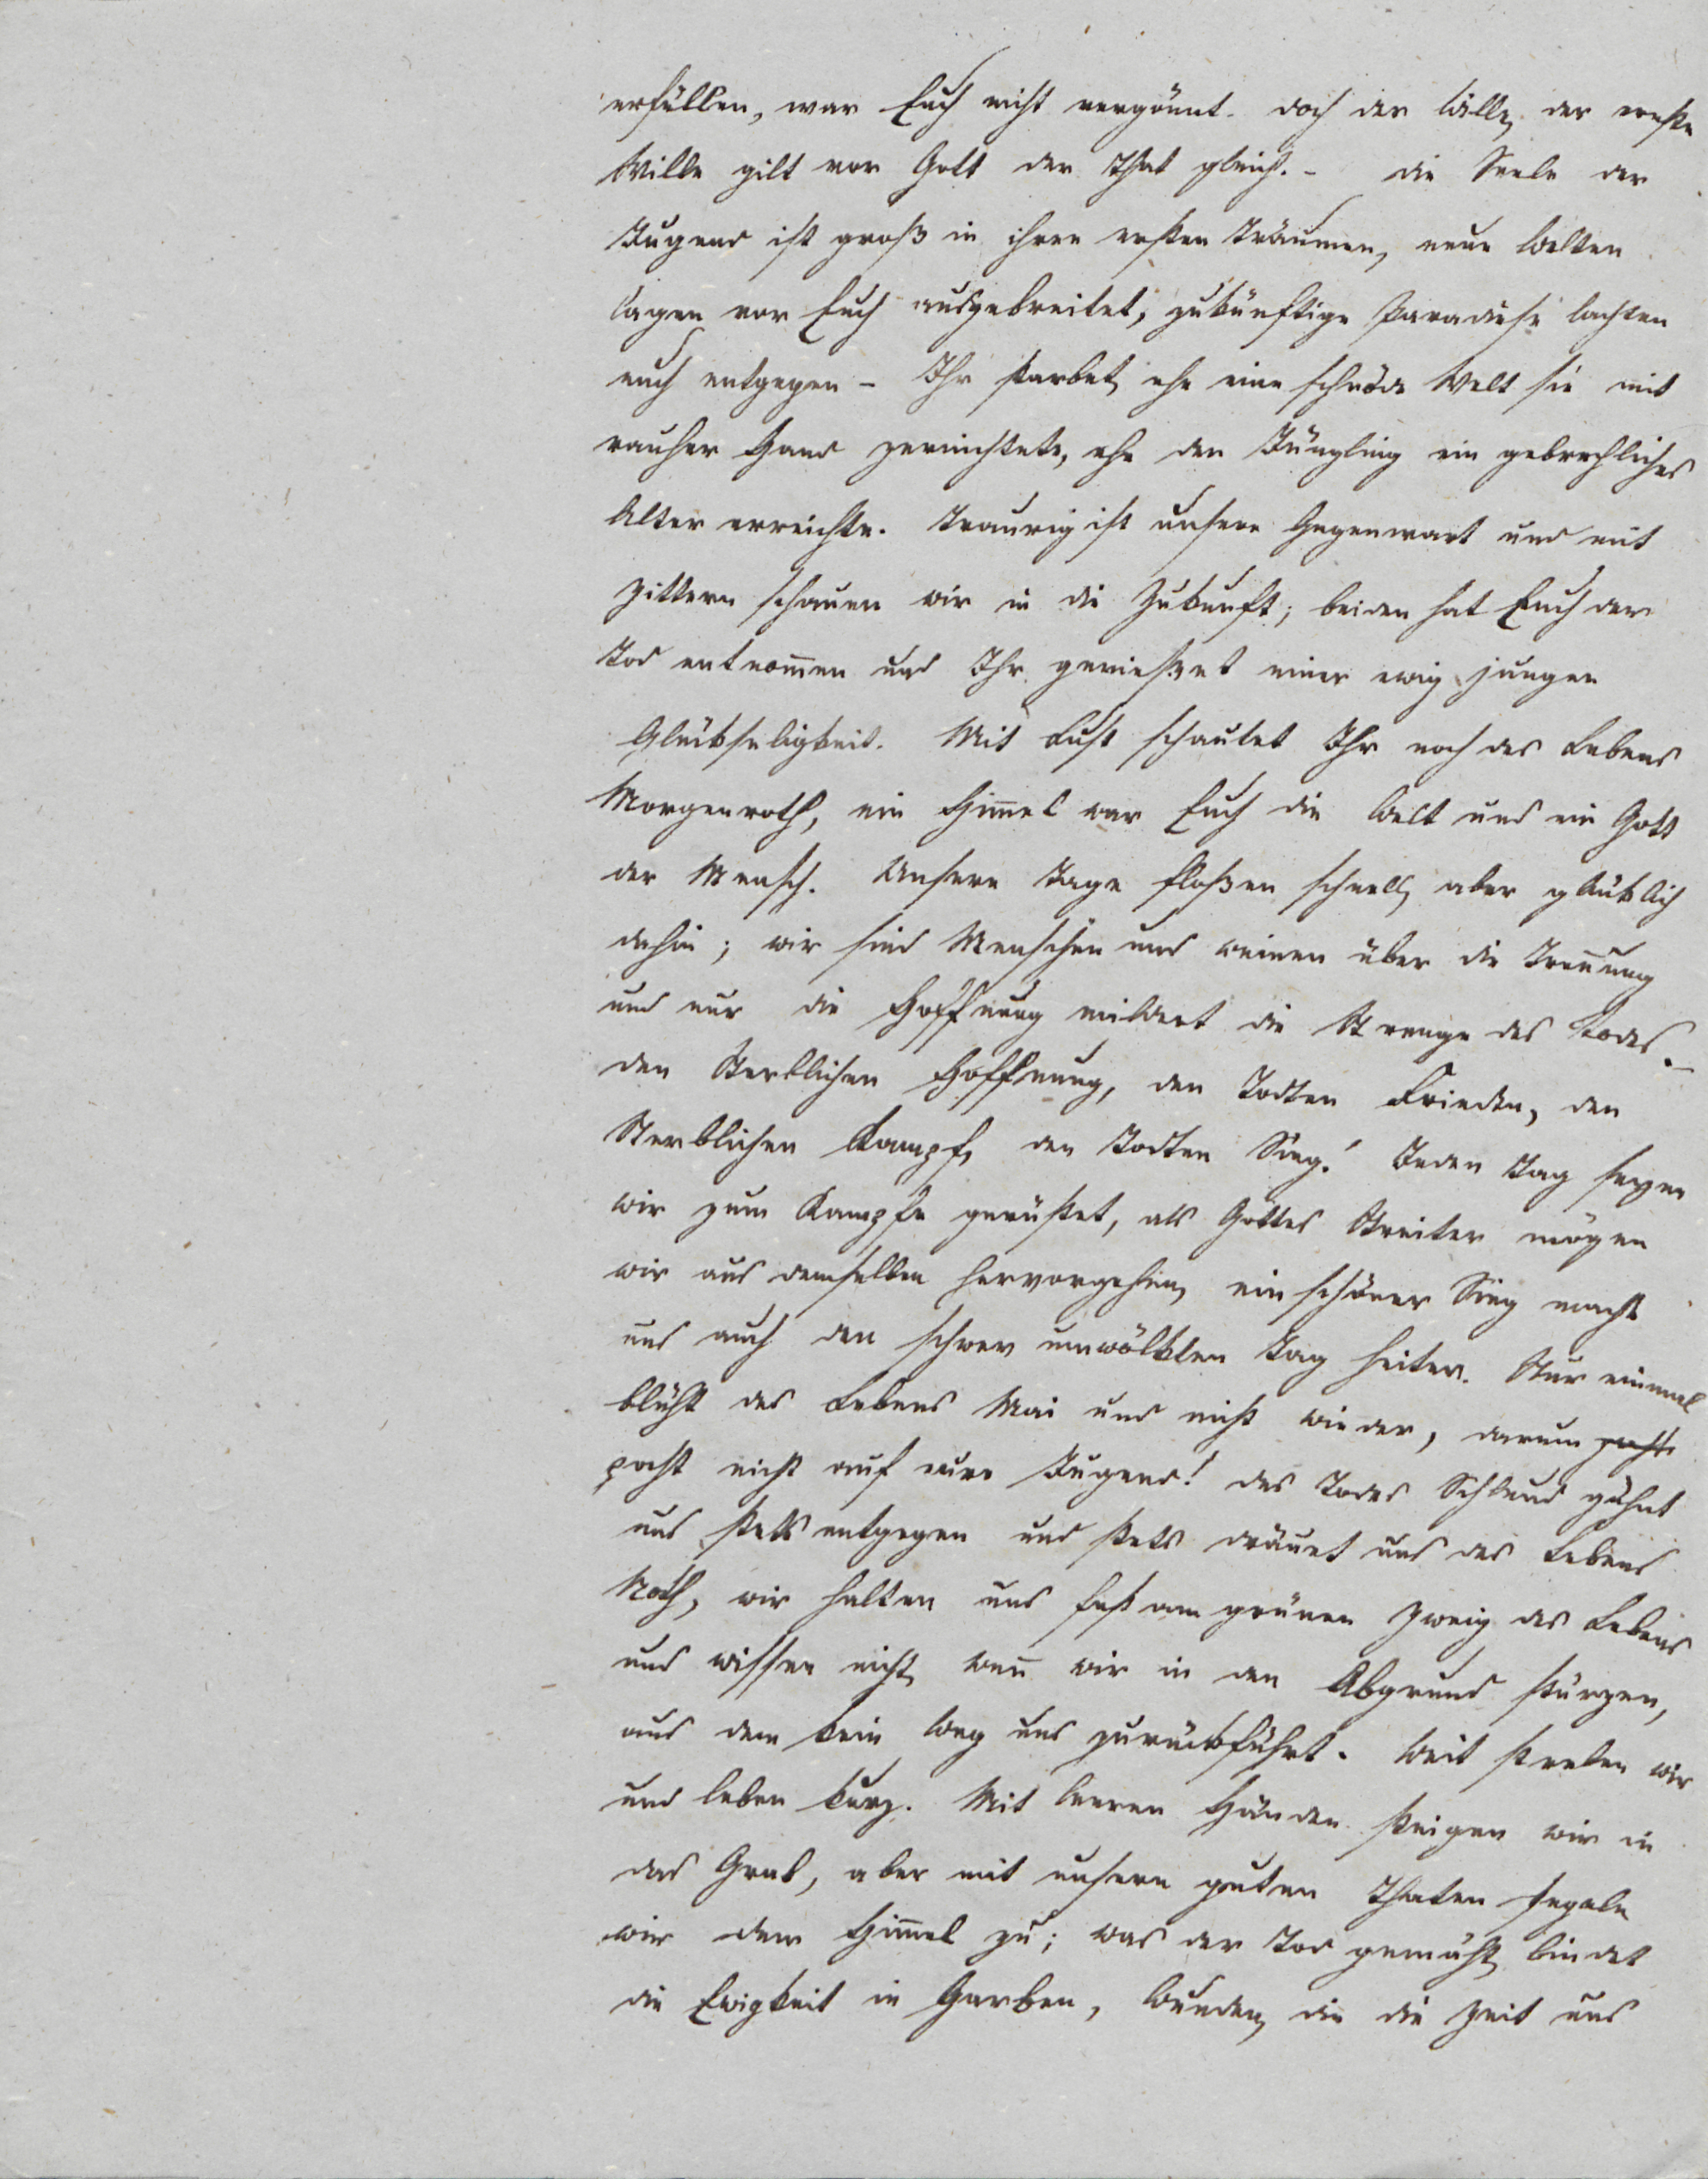 erfüllen, war Euch nicht vergönnt. doch der Wille, der ernste
Wille gilt vor Gott der That gleich. - die Seele der
Jugend ist groß in ihren ersten Träumen, neue Welten
lagen vor Euch ausgebreitet, zukünftige Paradiese lachten
euch entgegen - Ihr starbet, ehe eine schnöde Welt sie mit
rauher Hand zernichtete, ehe den Jüngling ein gebrechliches
Alter erreichte. Traurig ist unsere Gegenwart und mit
Zittern schauen wir in die Zukunft; beiden hat Euch der
Tod entnom̅en und Ihr genießet einer ewig jungen
Glükseligkeit. Mit Lust schautet Ihr noch des Lebens
Morgenroth, ein Him̅el war Euch die Welt und ein Gott
der Mensch. Unsere Tage floßen schnell, aber glüklich
dahin; wir sind Menschen und weinen über die Tren̅ung
und nur die Hoffnung mildert die Strenge des Todes. -
den Sterblichen Hoffnung, den Todten Frieden, den
Sterblichen Kampf, den Todten Sieg! Jeden Tag seyen
wir zum Kampfe gerüstet, als Gottes Streiter mögen
wir aus demselben hervorgehen, ein schöner Sieg macht
uns auch den schwer umwölkten Tag heiter. Nur einmal
blüht des Lebens Mai und nicht wieder, darum pocht
pocht nicht auf eure Jugend! des Todes Schlund gähnt
uns stets entgegen und stets dräuet uns des Lebens
Noth, wir halten uns fest am grünen Zweig des Lebens
und wissen nicht, wen̅ wir in den Abgrund stürzen,
aus dem kein Weg uns zurükführt. Weit streben wir
und leben kurz. Mit leeren Händen steigen wir in
das Grab, aber mit unsern guten Thaten segeln
wir dem Him̅el zu; was der Tod gemäht, bindet
die Ewigkeit in Garben, Wunden, die die Zeit uns